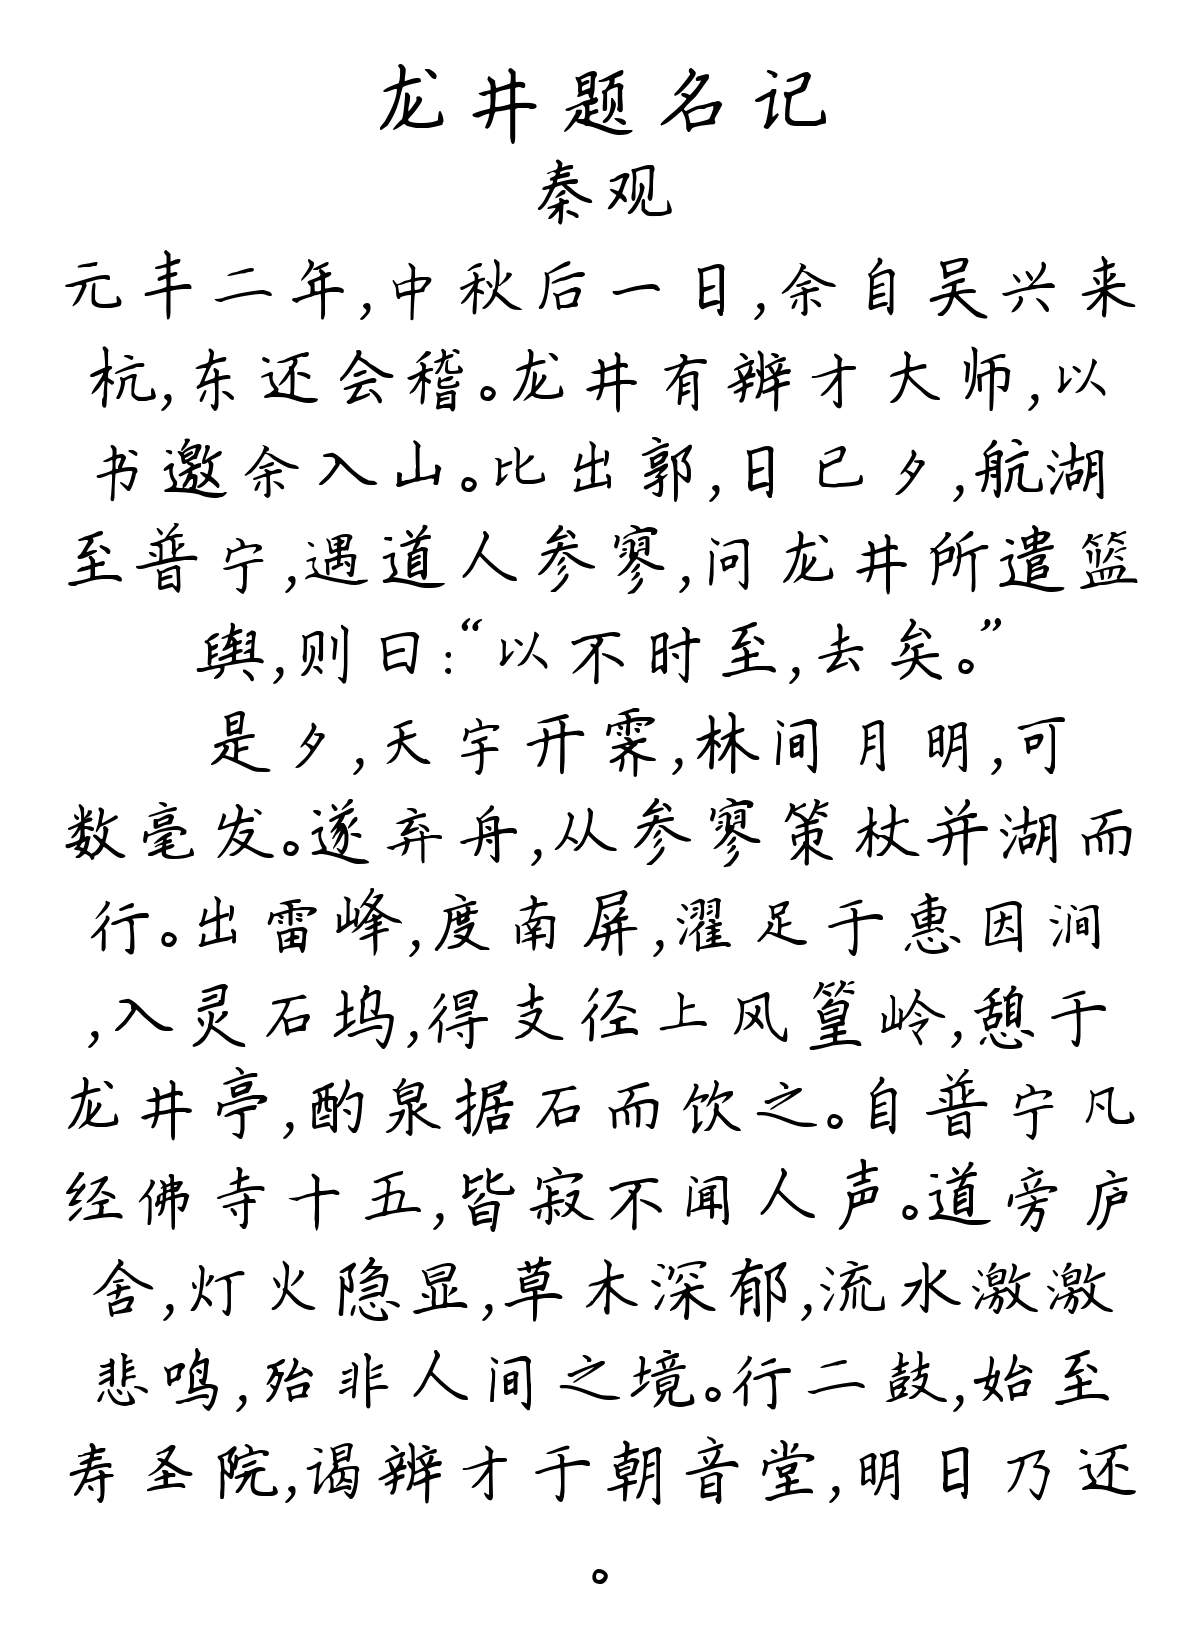 龙井题名记
秦观
元丰二年,中秋后一日,余自吴兴来
杭,东还会稽。龙井有辨才大师,以
书邀余入山。比出郭,日已夕,航湖
至普宁,遇道人参寥,问龙井所遣篮
舆,则曰:“以不时至,去矣。”
是夕,天宇开霁,林间月明,可
数毫发。遂弃舟,从参寥策杖并湖而
行。出雷峰,度南屏,濯足于惠因涧
,入灵石坞,得支径上风篁岭,憩于
龙井亭,酌泉据石而饮之。自普宁凡
经佛寺十五,皆寂不闻人声。道旁庐
舍,灯火隐显,草木深郁,流水激激
悲鸣,殆非人间之境。行二鼓,始至
寿圣院,谒辨才于朝音堂,明日乃还
。